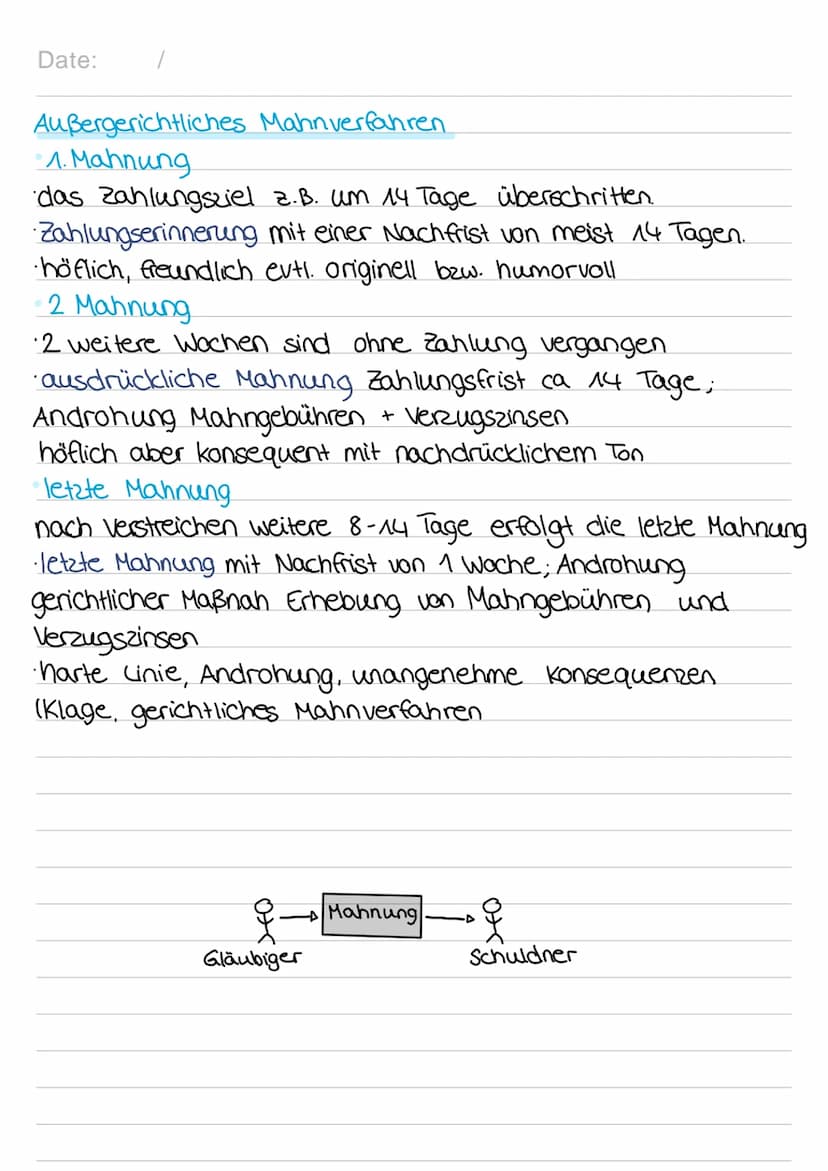 Date: /
Außergerichtliches Mahnverfahren
• 1. Mahnung
·das Zahlungsziel z.B. um 14 Tage überschritten.
·Zahlungserinnerung mit einer Nachfrist von meist 14 Tagen.
·höflich, freundlich evtl. originell bzw. humorvoll
• 2 Mahnung
·2 weitere Wochen sind ohne Zahlung vergangen
·ausdrückliche Mahnung Zahlungsfrist ca 14 Tage;
Androhung Mahngebühren + Verzugszinsen
höflich aber konsequent mit nachdrücklichem Ton
• letzte Mahnung
nach Verstreichen weitere 8-14 Tage erfolgt die letzte Mahnung
·letzte Mahnung mit Nachfrist von 1 Woche; Androhung
gerichtlicher Maßnah Erhebung von Mahngebühren und
Verzugszinsen
·harte Linie, Androhung, unangenehme Konsequenzen
(Klage, gerichtliches Mahnverfahren
Mahnung
Gläubiger Schuldner